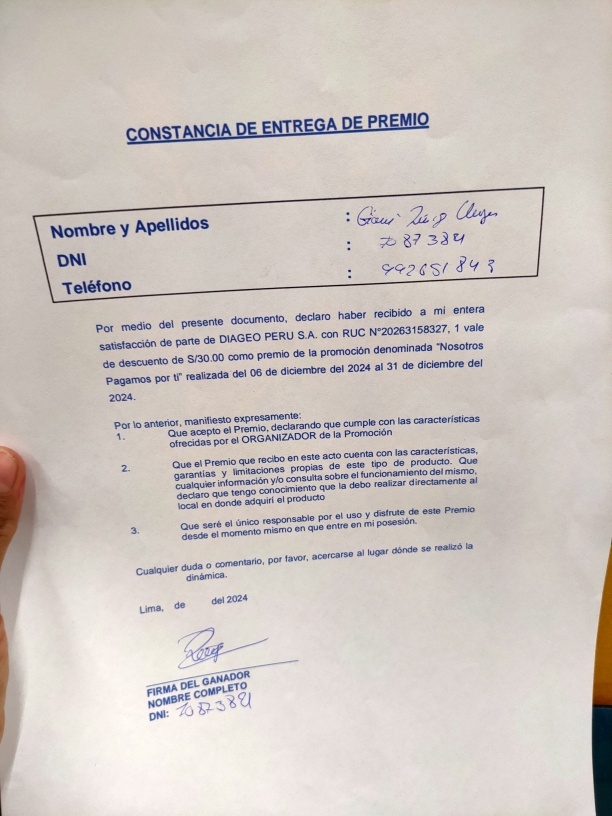 CONSTANCIA DE ENTREGA DE PREMIO
Nombre y Apellidos :
DNI :
Teléfono : 992651843
Por medio del presente documento, declaro haber recibido a mi entera
satisfacción de parte de DIAGEO PERU S.A. con RUC N°20263158327, 1 vale
de descuento de S/30.00 como premio de la promoción denominada "Nosotros
Pagamos por ti" realizada del 06 de diciembre del 2024 al 31 de diciembre del
2024.
Por lo anterior, manifiesto expresamente:
1. Que acepto el Premio, declarando que cumple con las características
ofrecidas por el ORGANIZADOR de la Promoción
2. Que el Premio que recibo en este acto cuenta con las características,
garantías y limitaciones propias de este tipo de producto. Que
cualquier información y/o consulta sobre el funcionamiento del mismo,
declaro que tengo conocimiento que la debo realizar directamente al
local en donde adquirí el producto
3. Que seré el único responsable por el uso y disfrute de este Premio
desde el momento mismo en que entre en mi posesión.
Cualquier duda o comentario, por favor, acercarse al lugar dónde se realizó la
dinámica.
Lima, de del 2024
FIRMA DEL GANADOR
NOMBRE COMPLETO
DNI: